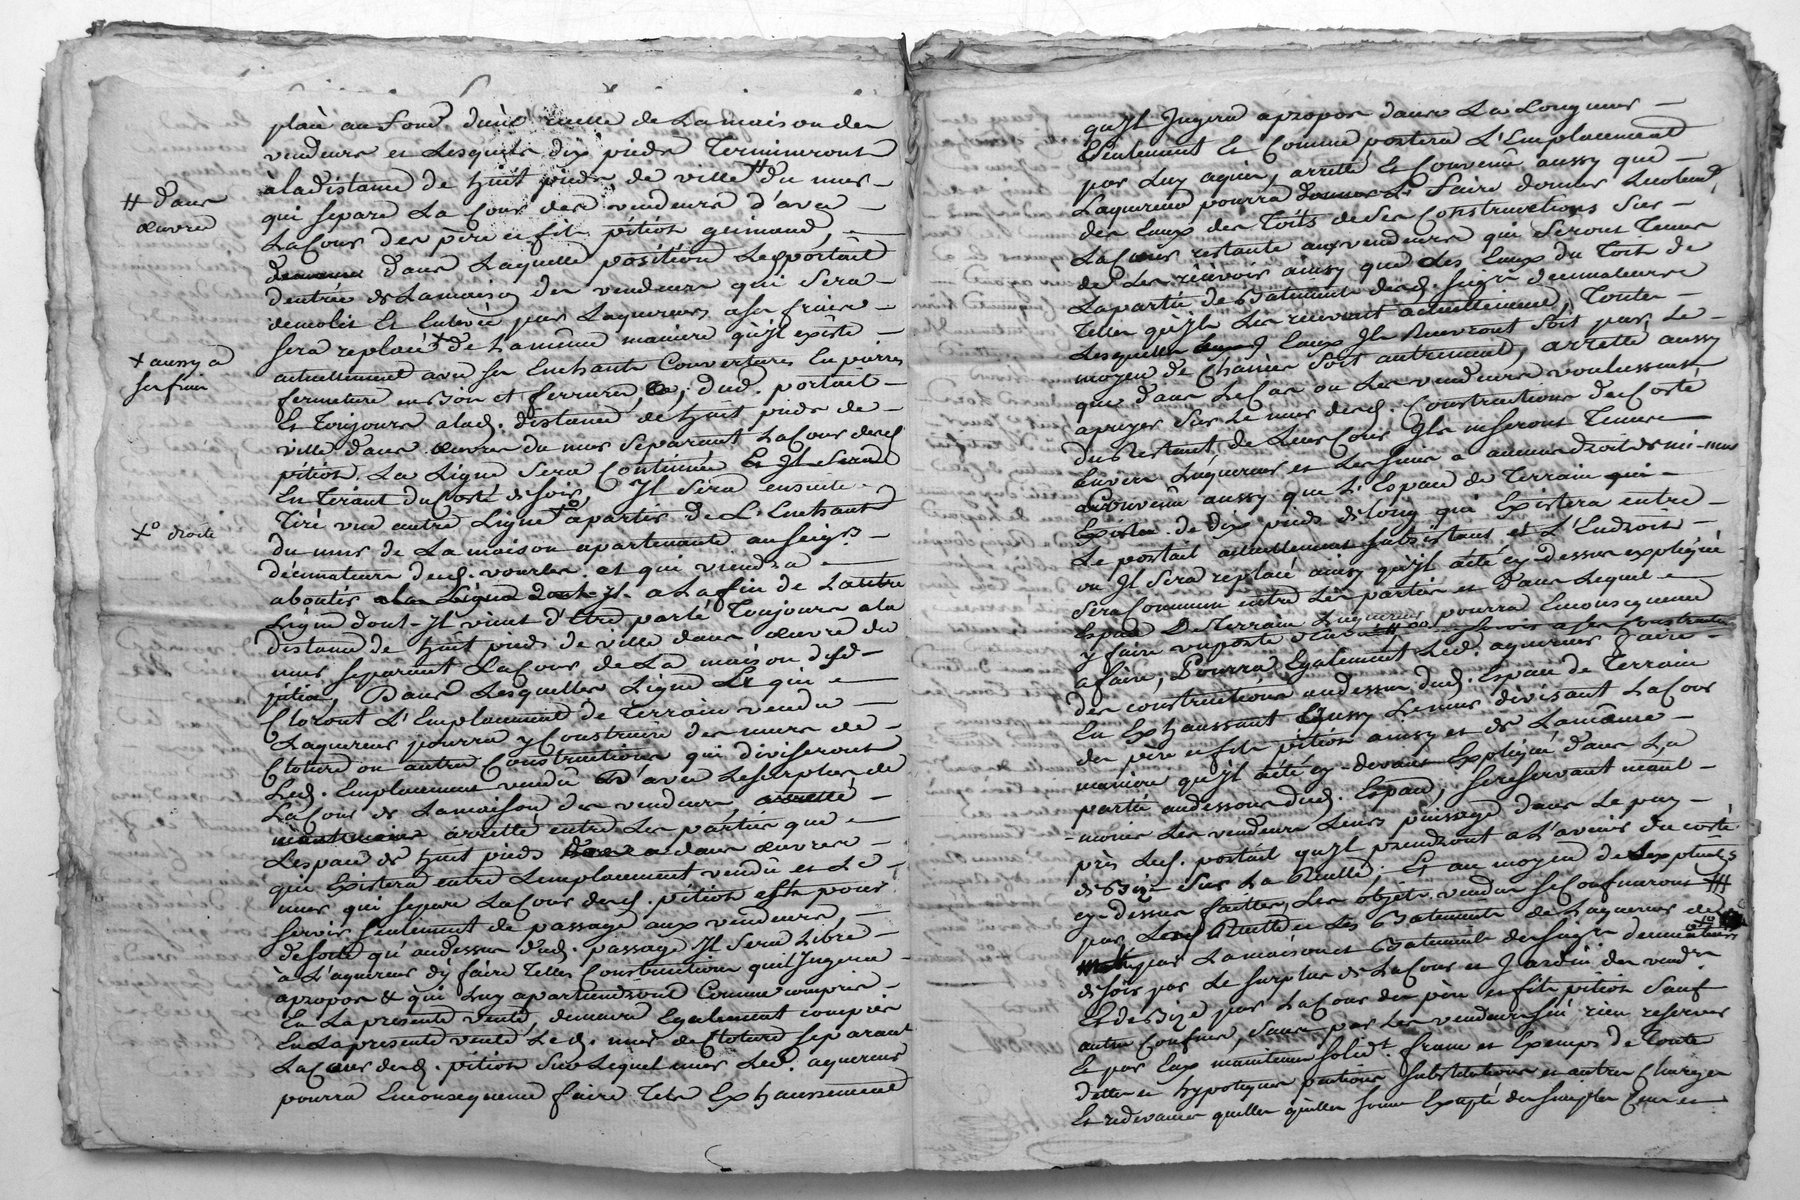 placé au fond d'une ruelle de la maison des
vendeurs et lesquels dix pieds termineront
à la distance de huit pieds de ville # du mur
# dans
œuvre
qui separe la cour des vendeurs d'avec
la cour des père et fils pition grimaud,
dans laquelle position le portait
d'entrée de la maison des vendeurs qui sera
demolit et enlevée par laquereur a ses fraix
sera replacé + de la même manière qu'jl existe
+ aussy a
ses frais
actuellement avec ses Enchants Couvertures En pierres
fermeture en Bon et ferrures, dud. portait
Et Toujours a lad. distance de huit pieds de
ville dans œuvre du mur separant la Cour desd
pition. La Ligne sera Continuée Et Jl sera
En Tirant du Costé de soir, Jl sera ensuite
Tiré une autre Ligne +o a partir de L'Enchant
+o droite
du mur de La maison apartenante au seigrs
décimateurs dud. vourles et qui viendra
aboutir a la Ligne dont jl a La fin de Lautre
Ligne dont Jl vient d'Etre parlé Toujours a la
distance de huit pieds de ville dans œuvre du
mur separant La Cour de La maison desd
pition, Dans Lesquelles Ligne qui
Cloront L'Emplacement de Terrain vendu
Laquereur pourra y Construire des murs de
Cloture ou autres Constructions qui diviseront
Led. Emplacement vendu d'avec Le surplus de
La Cour de La maison des vendeurs arretté
arretté entre Les parties que
L'espace de huit pieds dans œuvre
qui Existera entre Lemplacement vendu et Le
mur qui separe La Cour desd. pition est pour
servir seulement de passage aux vendeurs,
de sorte qu'audessus dud. passage Jl sera Libre
à L'aquereur dy faire Telles Constructions quil Jugera
apropos & qui Luy apartiendront Comme compris
En La presente vente, demeure Egalement compris
En La presente vente Led. mur de Cloture separant
La Cour desd. pition Sur Lequel mur Led. aquereur
pourra Enconsequence faire Tels Exhaussement
qu'Jl Jugera apropos dans La Longueur
seulement Et Comme portera L'Emplacement
par Luy aquis, arretté Et Convenu aussy que
Laquereur pourra donner Le faire donner Lecoulemt
des Eaux des Toits de ses Constructions sur
La Cour restante aux vendeurs qui seront Tenus
de Les recevoir ainsy que Les Eaux du Toit de
La partie de Batiments desd. seigrs decimateurs
Telles qu'Jls Les recevoient actuellement, Toutes
Lesquelles Eaux Jls Recevront soit par Le
moyen de Chainée soit autrement, arretté aussy
que dans Le Cas ou Les vendeurs voulussent
apuyer sur Le mur desd. Constructions du Costé
du Restant de Leur Cour Jls ne seront Tenus
Envers Laquereur et Les siens a aucun droit de mi-mur
Convenu aussy que L'Espace de Terrain qui
Existe de dix pieds de long qui Existera entre
Le portait actuellement subsistant et L'Endroit
ou Jl sera replacé ainsy qu'jl a été cy-dessus expliqué
sera Commun entre Les parties et dans Lequel
Espace De Terrain Laquereur pourra Enconsequence
y faire
a faire, Pourra Egalement Led. aquereur faire
des constructions audessus dud. Espace de Terrain
En Exhaussant aussy Le mur divisant La Cour
des père et fils pition ainsy et de La même
maniere qu'jl a été cy-devant Expliqué dans La
partie audessous dud. Espace, se reservant neant
-moins Les vendeurs Leurs puissage dans Le puy
près Led. portait qu'jl prendront a L'avenir du costé
de Bize sur La Ruelle; Et au moyen de Lexploits
cy-dessus faittes, Les objets vendus se Confineront
par Lesd Ruelle Les Batiments de Laquereur de
par La maison et Batiments des seigrs decimateurs
de soir par Le surplus de La Cour et Jardin des vendrs
Et de Bize par La Cour des père et fils pition sauf
autres Confins, sans par Les vendeurs s'en rien reserver
Et par Eux maintenus solidt. franc et Exempt de Toute
dettes et hypotèques pentions, substitutions et autres Charges
Et redevances quelles qu'elles soient Excepté des simples Cens et